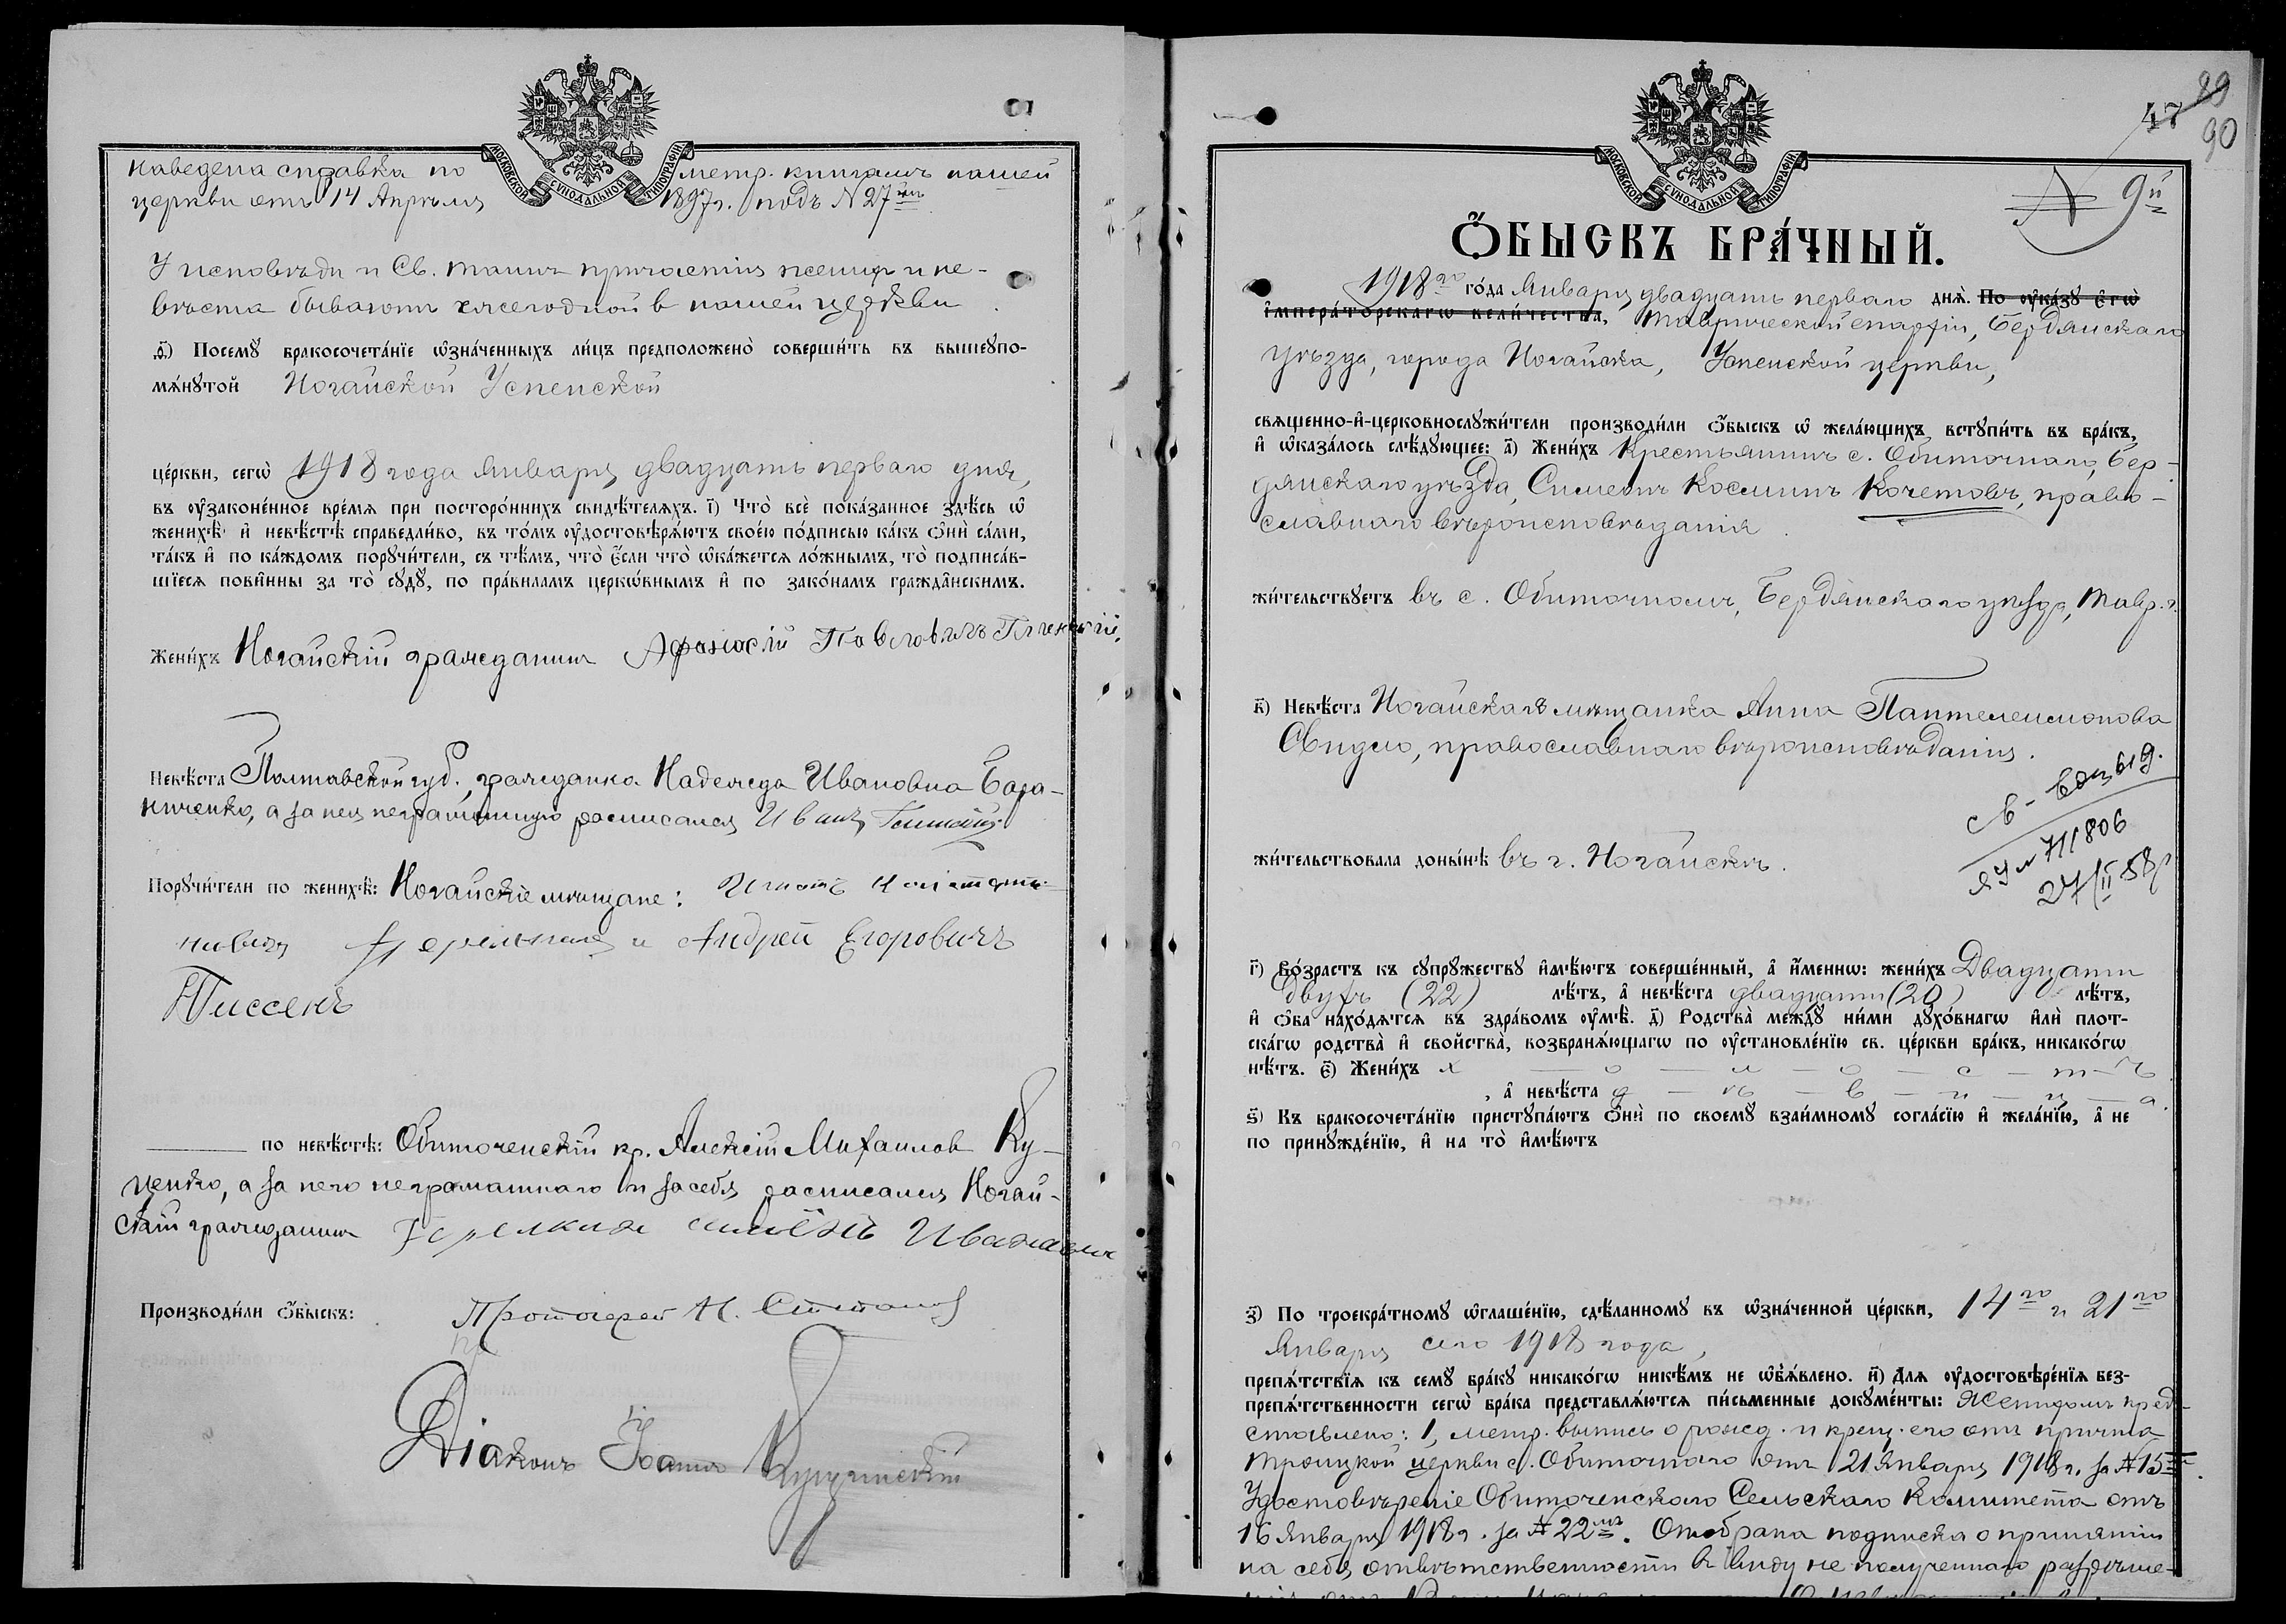 наведена справка по метр. книгамъ нашей
церкви отъ 14 Апрѣля 1897г. подъ N 27
МОСКОВСКОЙ СѴНОДАЛЬНОЙ ТИПОГРАФІИ
У исповѣди и Св. таинъ причастія женихъ и не-
вѣста бываютъ ежегодной в нашей церкви.
ѳ҃) Посемꙋ̀ бракосочета́нїе ѡ҆зна́ченныхъ ли́цъ предположено̀ соверши́ть въ вышеꙋпо-
мѧ́нꙋтой Ногайской Успенской
це́ркви, сегѡ̀ 1918 года Января двадцать перваго дня,
въ ᲂу҆зако́ненное вре́мѧ при посторо́ннихъ свидѣ́телѧхъ. і҃) Что̀ всѐ пока́занное здѣ́сь ѡ҆
женихѣ̀ и҆ невѣ́стѣ справедли́во, въ то́мъ ᲂу҆достовѣрѧ́ютъ свое́ю по́дписью ка́къ ѻ҆нѝ са́ми,
та́къ и҆ по ка́ждомъ порꙋчи́тели, съ тѣ́мъ, что̀ є҆́сли что̀ ѡ҆ка́жетсѧ ло́жнымъ, то̀ подписа́в-
шїесѧ пови́нны за то̀ сꙋдꙋ̀, по пра́виламъ церкѡ́внымъ и҆ по зако́намъ гражда̑нскимъ.
Жени́хъ Ногайскій гражданинъ Афанасій Павловичъ
Невѣ́ста Полтавской губ., гражданка Надежда Ивановна Бара-
ниченко, а за нея неграмотную расписался Иванъ
Порꙋчи́тели по женихѣ̀: Ногайскіе мѣщане: Игнатъ
и Андрей Егоровичъ
Тиссенъ
по невѣ́стѣ: Обиточенскій кр. Алексій Михаилов Ку-
ценко, а за него неграматнаго и за себя расписался Ногай-
скій гражданинъ Семёнъ Ивановичъ
Производи́ли ѻ҆́быскъ: Протоіерей Н. Степановъ
Діаконъ Іоаннъ
47 89
90
N 9й
МОСКОВСКОЙ СѴНОДАЛЬНОЙ ТИПОГРАФІИ
Ѻ҆́БЫСКЪ БРА́ЧНЫЙ.
1918го го́да Января двадцать перваго днѧ̀. По ᲂу҆ка́зꙋ є҆гѡ̀
і҆мпера́торскагѡ вели́чества, Таврической епархіи, Бердянскаго
уѣзда, города Ногайска, Успенской церкви,
свѧще́нно-и҆-церковнослꙋжи́тели производи́ли ѻ҆́быскъ ѡ҆ жела́ющихъ встꙋпи́ть въ бра́къ,
и҆ ѡ҆каза́лось слѣ́дꙋющее: а҃) Жени́хъ Крестьянинъ с. Обиточнаго, Бер-
дянскаго уѣзда, Симеонъ Косминъ Кочетовъ, право-
славнаго вѣроисповѣданія.
жи́тельствꙋетъ въ с. Обиточномъ, Бердянскаго уѣзда, Тавр. г.
в҃) Невѣ́ста Ногайская мѣщанка Анна Пантелеимонова
Свидло, православнаго вѣроисповѣданія.
св-во выд.
ЯУ № 711806
27/II 58г
жи́тельствовала доны́нѣ въ г. Ногайскѣ.
г҃) Во́зрастъ къ сꙋпрꙋ́жествꙋ и҆мѣ́ютъ соверше́нный, а҆ и҆́меннѡ: жени́хъ Двадцати
двухъ (22) лѣ́тъ, а҆ невѣ́ста двадцати (20) лѣ́тъ,
и҆ ѻ҆́ба нахо́дѧтсѧ въ здра́вомъ ᲂу҆мѣ̀. д҃) Родства̀ междꙋ̀ ни́ми дꙋхо́внагѡ и҆лѝ плот-
ска́гѡ родства̀ и҆ сво́йства̀, возбранѧ́ющагѡ по ᲂу҆становле́нїю св. це́ркви бра́къ, никако́гѡ
нѣ́тъ. є҃) Жени́хъ х — о — л — о — с — т — ъ
, а҆ невѣ́ста д — ѣ — в — и — ц — а.
ѕ҃) Къ бракосочета́нїю пристꙋпа́ютъ ѻ҆нѝ по своемꙋ̀ взаи́мномꙋ согла́сїю и҆ жела́нїю, а҆ не
по принꙋжде́нїю, и҆ на то̀ и҆мѣ́ютъ
з҃) По троекра́тномꙋ ѡ҆глаше́нїю, сдѣ́ланномꙋ въ ѡ҆зна́ченной це́ркви, 14го и 21го
Января сего 1918 года,
препѧ́тствїѧ къ семꙋ̀ бра́кꙋ никако́гѡ никѣ́мъ не ѡ҆б̾ѧ́влено. и҃) Длѧ ᲂу҆достовѣре́нїѧ без-
препѧ́тственности сегѡ̀ бра́ка представлѧ́ютсѧ пи́сьменные докꙋме́нты: Женихомъ пред-
ставлено: 1, метр. выпись о рожд. и крещ. его отъ причта
Троицкой церкви с. Обиточнаго отъ 21 Января 1918 г. за № 15
Удостовѣреніе Обиточенскаго Сельскаго Комитета отъ
16 Января 1918 г. за № 22мъ. Отобрана подписка о принятіи
на себя отвѣтственности въ виду не полученнаго разрѣше-